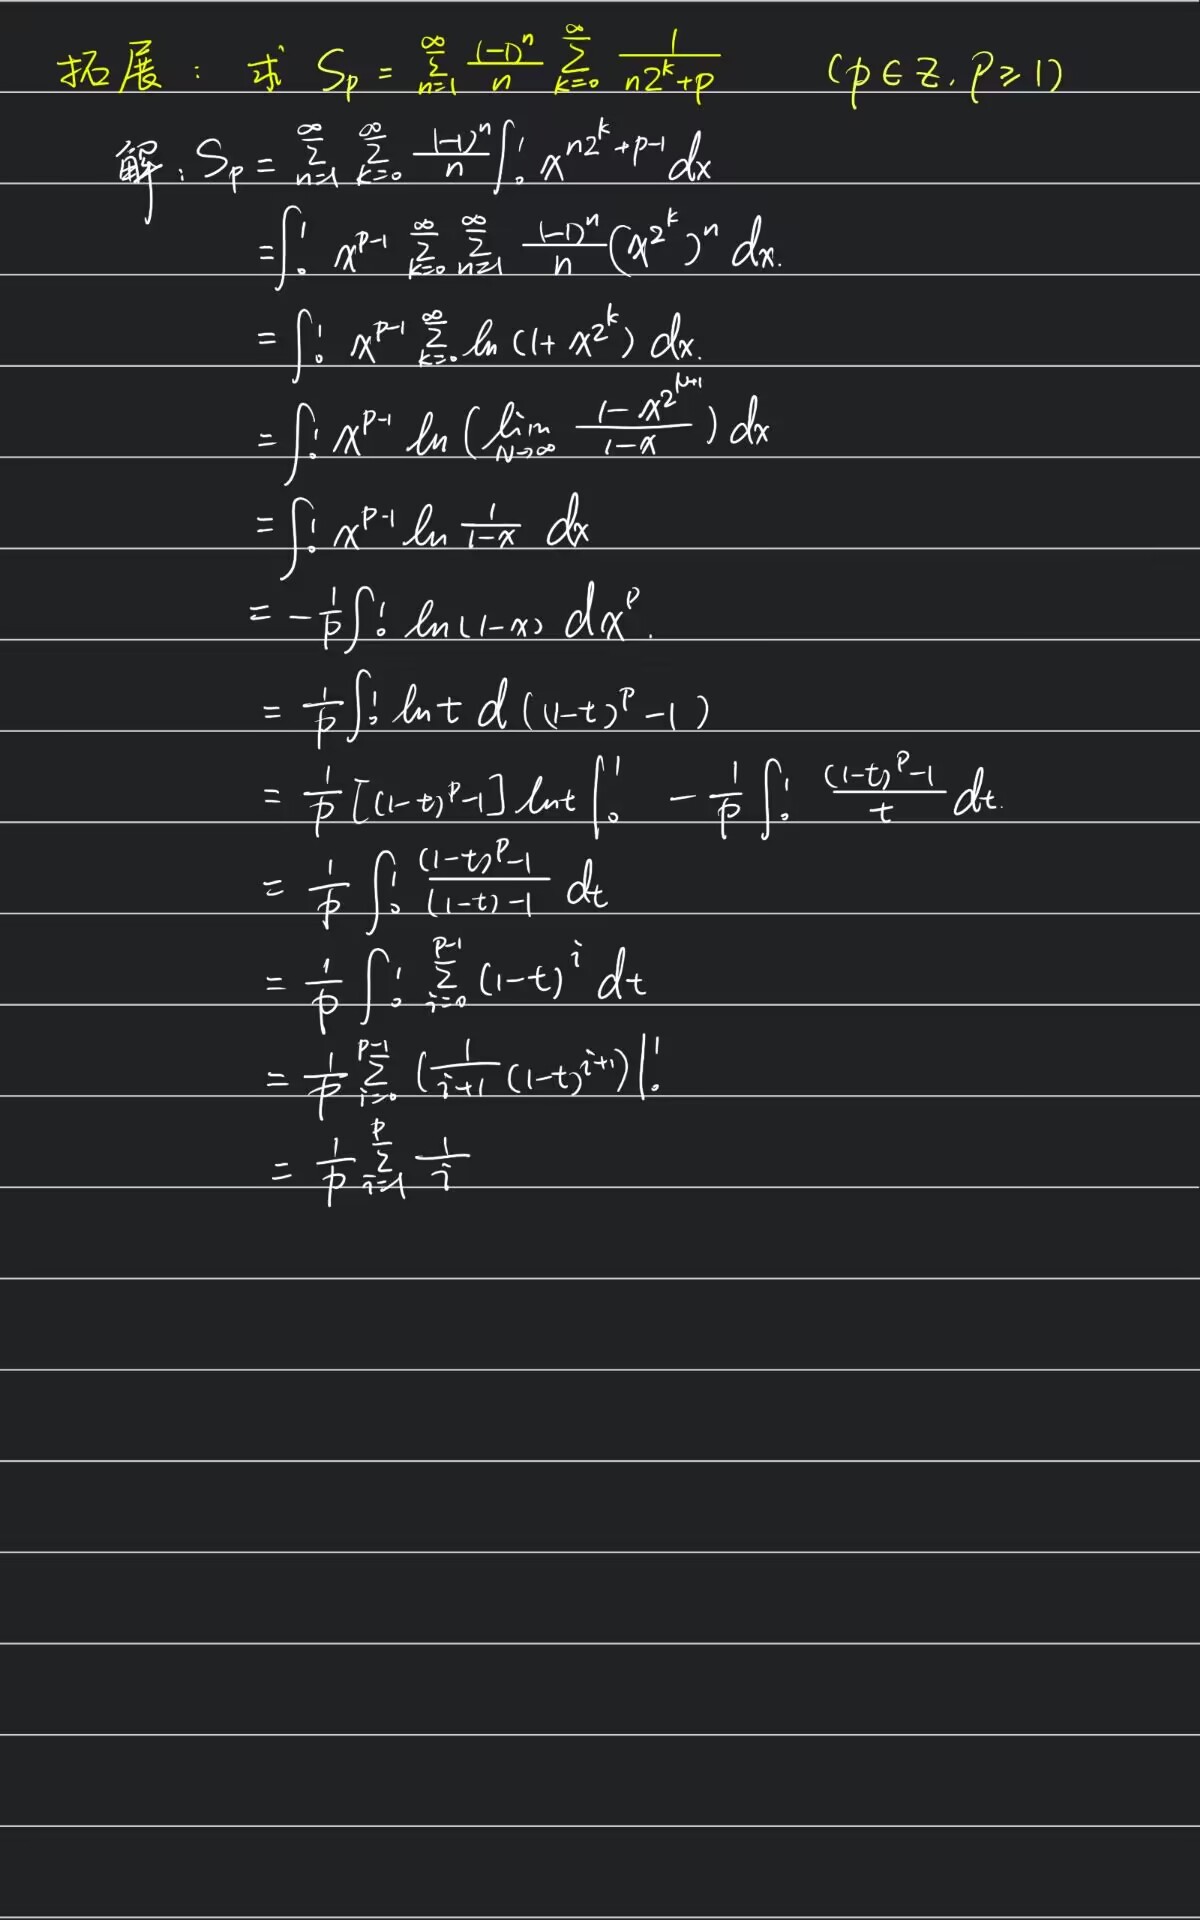 拓展: 求 Sₚ = ∑_{n=1}^{∞} \frac{(-1)^n}{n} ∑_{k=0}^{∞} \frac{1}{n2^k+p} (p∈Z, p≥1)
解: Sₚ = ∑_{n=1}^{∞} ∑_{k=0}^{∞} \frac{(-1)^n}{n} ∫_0^1 x^{n2^k+p-1} dx
= ∫_0^1 x^{p-1} ∑_{k=0}^{∞} ∑_{n=1}^{∞} \frac{(-1)^n}{n} (x^{2^k})^n dx.
= ∫_0^1 x^{p-1} ∑_{k=0}^{∞} ln(1+x^{2^k}) dx.
= ∫_0^1 x^{p-1} ln(lim_{N→∞} \frac{1-x^{2^{N+1}}}{1-x}) dx
= ∫_0^1 x^{p-1} ln \frac{1}{1-x} dx
= -\frac{1}{p} ∫_0^1 ln(1-x) dx^p.
= \frac{1}{p} ∫_0^1 ln t d((1-t)^p-1)
= \frac{1}{p} [(1-t)^p-1] ln t |_0^1 - \frac{1}{p} ∫_0^1 \frac{(1-t)^p-1}{t} dt.
= \frac{1}{p} ∫_0^1 \frac{(1-t)^p-1}{(1-t)-1} dt
= \frac{1}{p} ∫_0^1 ∑_{i=0}^{p-1} (1-t)^i dt
= \frac{1}{p} ∑_{i=0}^{p-1} (\frac{1}{i+1} (1-t)^{i+1}) |_0^1
= \frac{1}{p} ∑_{i=1}^{p} \frac{1}{i}